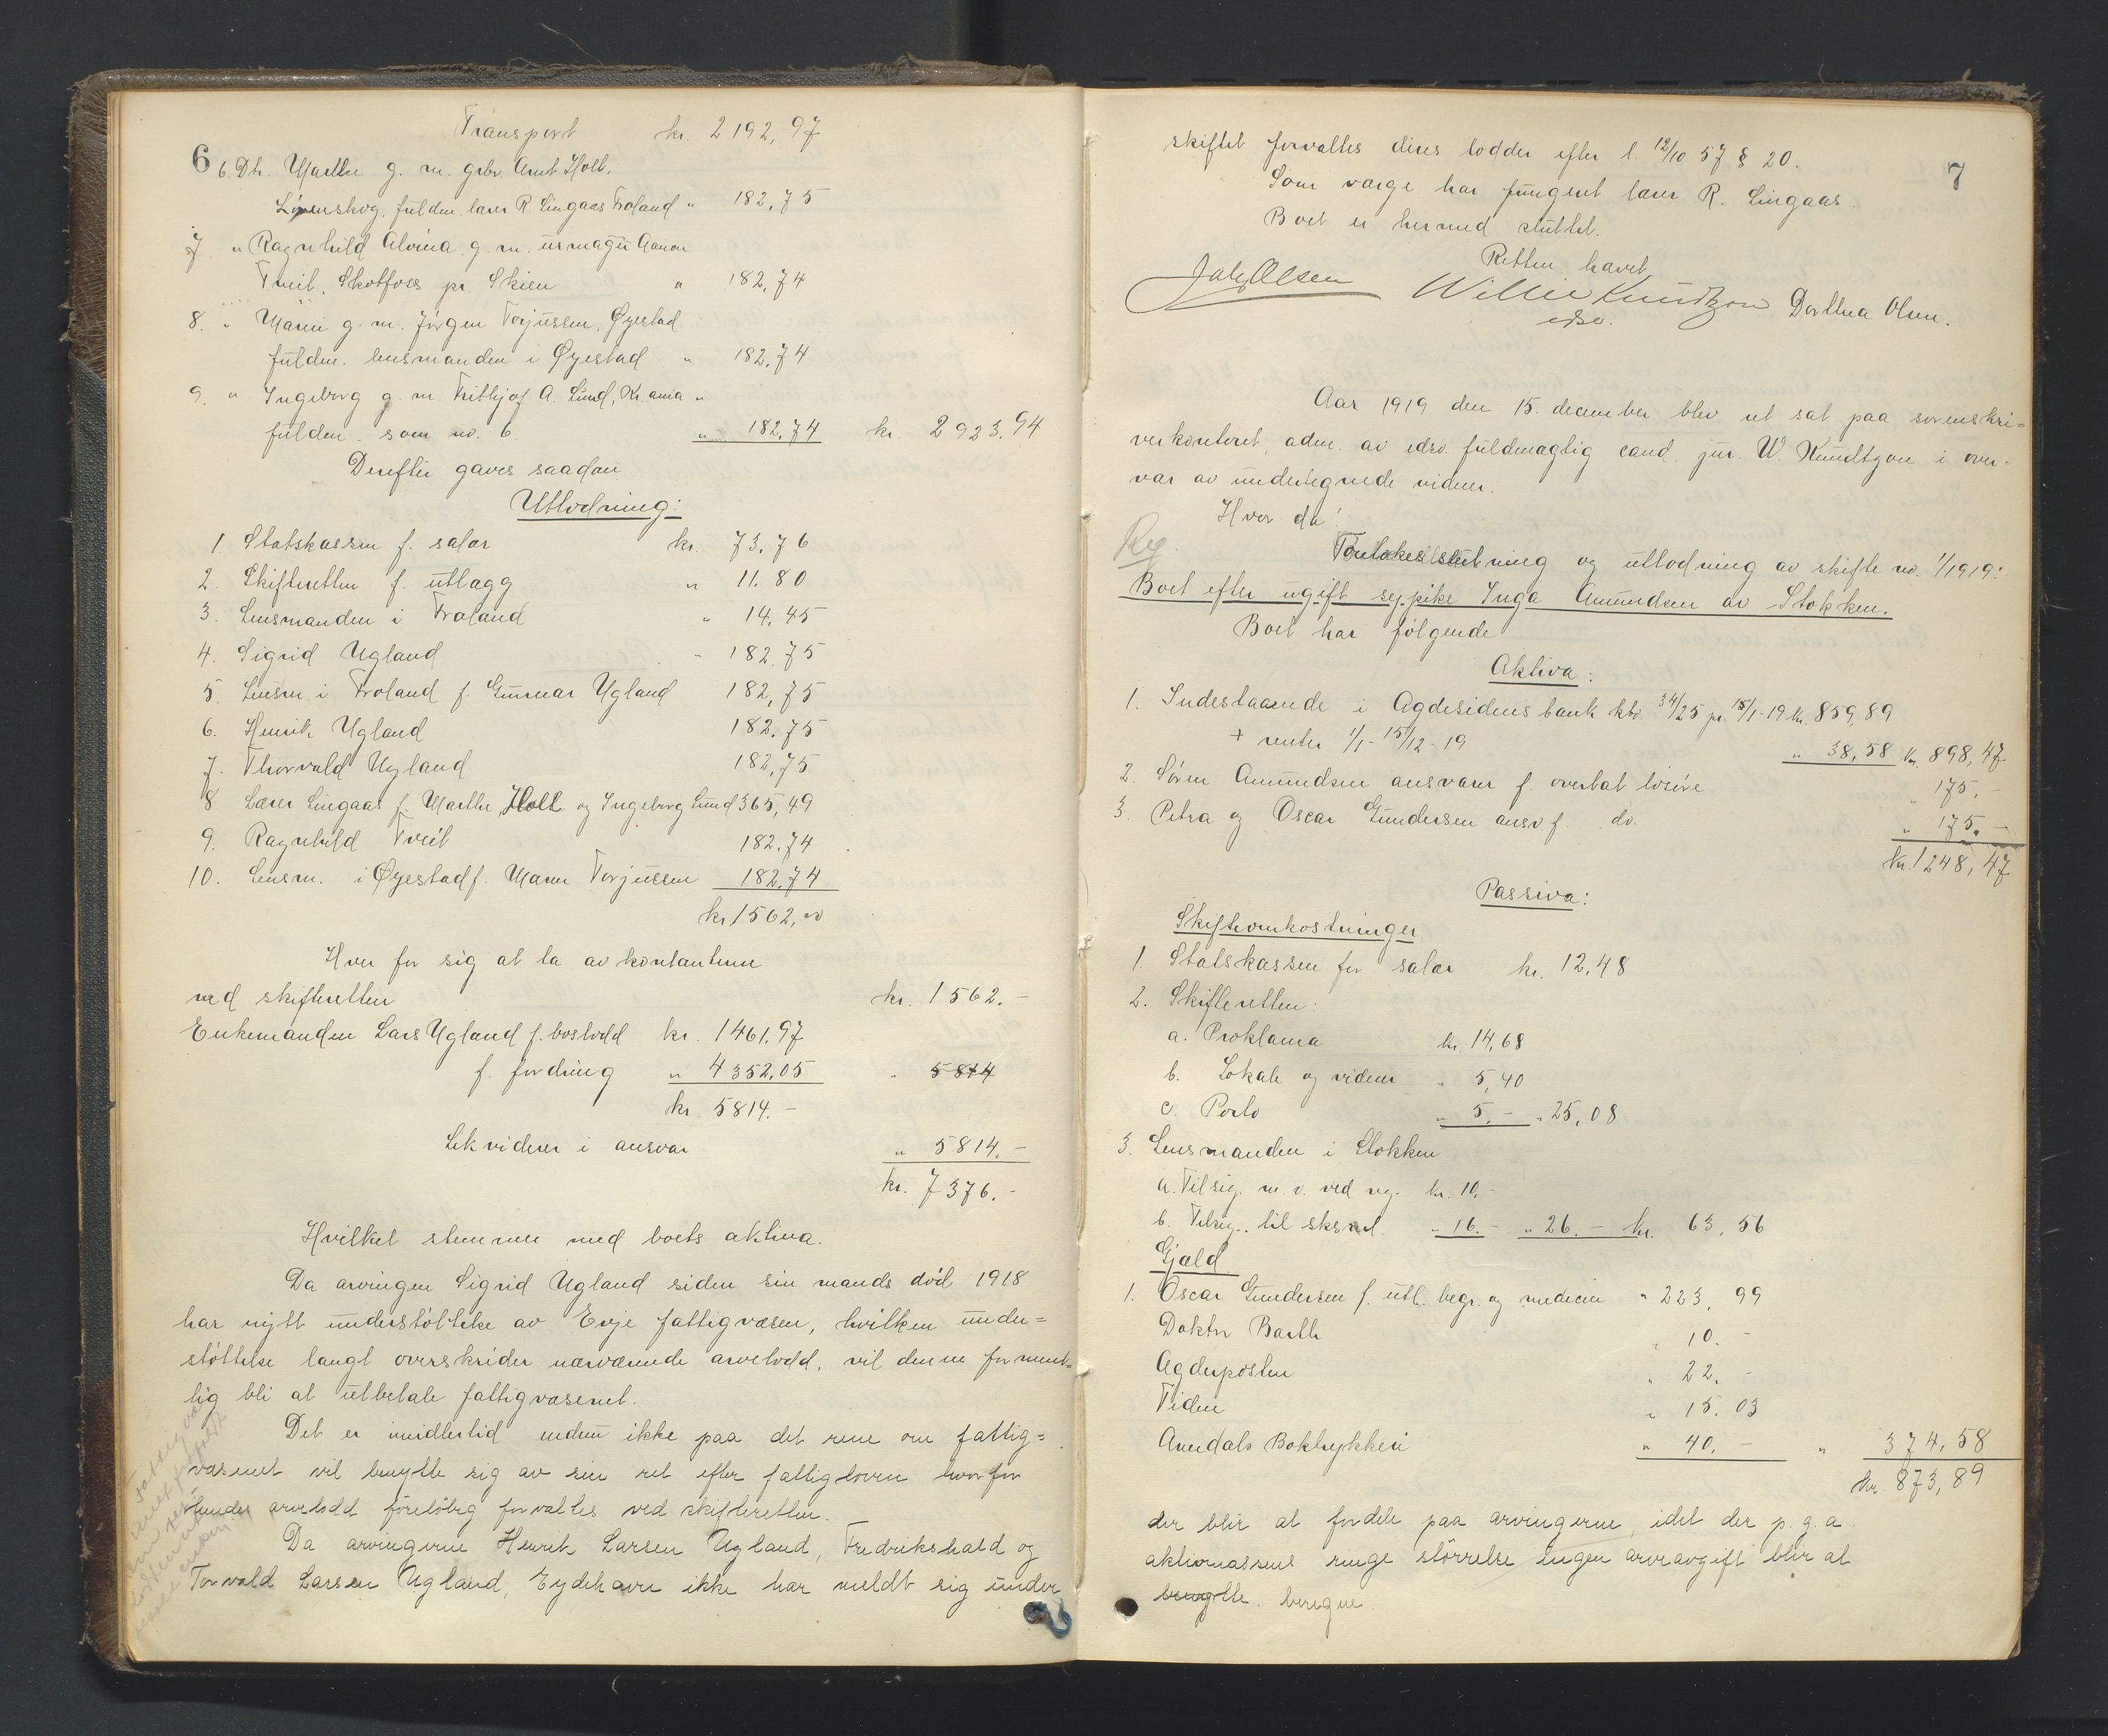 Transport kr. 2192,97
6
6. Dtr. Marthe g. m. grbr. Arnt Holt,
Lövenskog, fuldm. lærer R. Lingaas Froland " 182,75
7 " Ragnhild Alvina g. m. urmager Aanon
Tveit, Skotfoss pr. Skien " 182,74
8. " Maren g. m. Jörgen Torjussen, Øyestad
fuldm. lensmanden i Øyestad " 182,74
9. " Ingeborg g. m. Fritthjof A. Lund, Kr.ania "
fuldm. som no. 6. " 182,74 kr. 2923,94
Derefter gaves saadan
Utlodning:
1. Statskassen f. salær kr. 73,76
2. Skifteretten f. utlægg " 11.80
3. Lensmanden i Froland " 14,45
4. Sigrid Ugland " 182,75
5 Lensm. i Froland f. Gunnar Ugland 182,75
6. Henrik Ugland 182.75
7. Thorvald Ugland 182,75
8 Lærer Lingaas f. Marthe Holt og Ingeborg Lund 365,49
9. Ragnhild Tveit 182,74
10. Lensm. i Øyestad f. Maren Torjussen 182,74
kr 1562,00
Hver for sig at ta av kontanterne
ved skifteretten kr. 1562.-
Enkemanden Lars Ugland f. boslodd kr. 1461,97
f. fordring " 4352,05 " 5814
kr. 5814.-
Likviderer i ansvar " 5814.-
kr. 7376.-
Hvilket stemmer med boets aktiva.
Da arvingen Sigrid Ugland siden sin mands död 1918
har nytt understöttelse av Evje fattigvæsen, hvilken under=
stöttelse langt overskrider nærværende arvelodd, vil denne forment=
lig bli at utbetale fattigvæsenet.
Det er imidlertid endnu ikke paa det rene om fattig=
væsenet vil benytte sig av sin ret efter fattigloven hvorfor
hendes arvelodd foreløbig forvaltes ved skifteretten.
Da arvingerne Henrik Larsen Ugland, Fredrikshald og
Torvald Larsen Ugland, Eydehavn ikke har meldt sig under
7
skiftet forvaltes deres lodder efter l. 12/10 57 § 20.
Som værge har fungert lærer R. Lingaas.
Boet er hermed sluttet.
Retten hævet
Jak Olsen Willie Knudtzon Dorthea Olsen.
edsv.
Aar 1919 den 15. december blev ret sat paa sorenskri=
verkontoret, adm. av edsv. fuldmægtig cand. jur. W. Knudtzon i over-
vær av undertegnede vidner.
Hvor da:
Reg.
Foretokes slutning og utlodning av skifte no. 1/1919:
Boet efter ugift sypike Inga Amundsen av Stokken.
Boet har følgende
Aktiva:
1. Indestaaende i Agdesidens bank kto. 34/25 pr. 15/1-19 kr. 859,89
+ renter 1/1-15/12-19 " 38,58 kr. 898,47
2. Sören Amundsen ansvarer f. overtat lösöre " 175.-
3. Petra og Oscar Gundersen ansv. f. do. " 175.-
kr 1248,47
Passiva:
Skifteomkostninger
1. Statskassen for salær kr. 12,48
2. Skifteretten:
a. Proklama kr. 14,68
b. Lokale og vidner " 5,40
c. Porto " 5.- " 25,08
3. Lensmanden i Stokken
a. Tilsig. m. v. ved reg. kr. 10.-
b. Tilsig. til sksml. " 16.- " 26.- kr. 63,56
Gjæld
1. Oscar Gundersen f. utl. begr. og medicin " 223,99
Doktor Barth " 10.-
Agderposten " 22.-
Tiden " 15.03
Arendals Boktrykkeri " 40.- " 374,58
kr. 873,89
der blir at fordele paa arvingerne, idet der p.g.a.
aktivmassens ringe störrelse ingen arveavgift blir at
benytte. beregne.